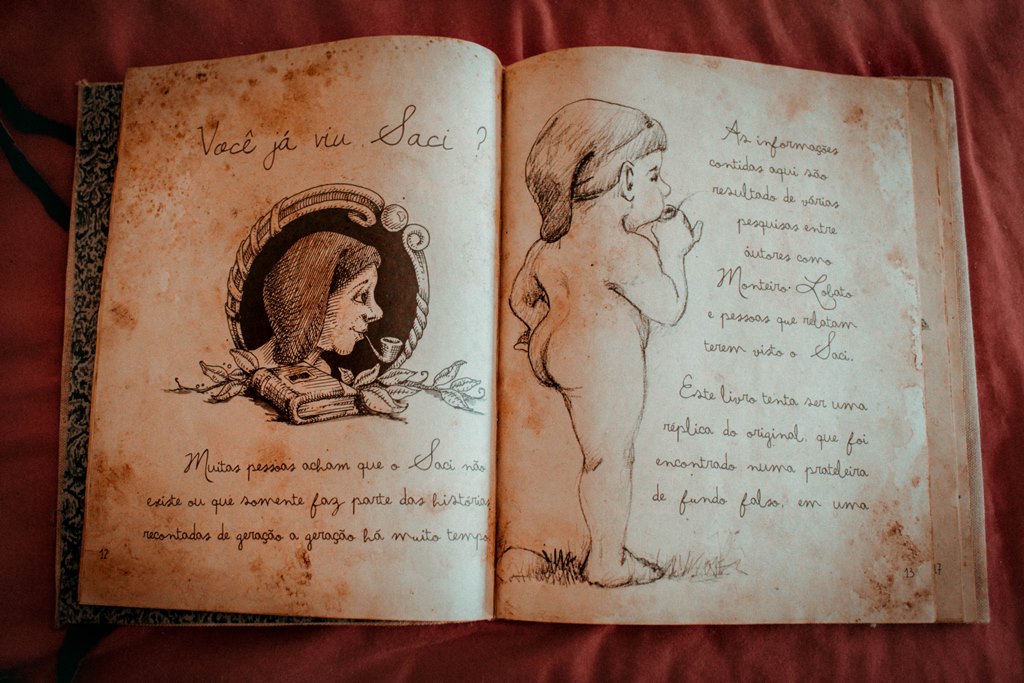 Você já viu Saci ?
Muitas pessoas acham que o Saci não
existe ou que somente faz parte das histórias
recontadas de geração a geração há muito tempo
12
As informações
contidas aqui são
resultado de várias
pesquisas entre
autores como
Monteiro Lobato
e pessoas que relatam
terem visto o Saci.
Este livro tenta ser uma
réplica do original, que foi
encontrado numa prateleira
de fundo falso, em uma
13
17